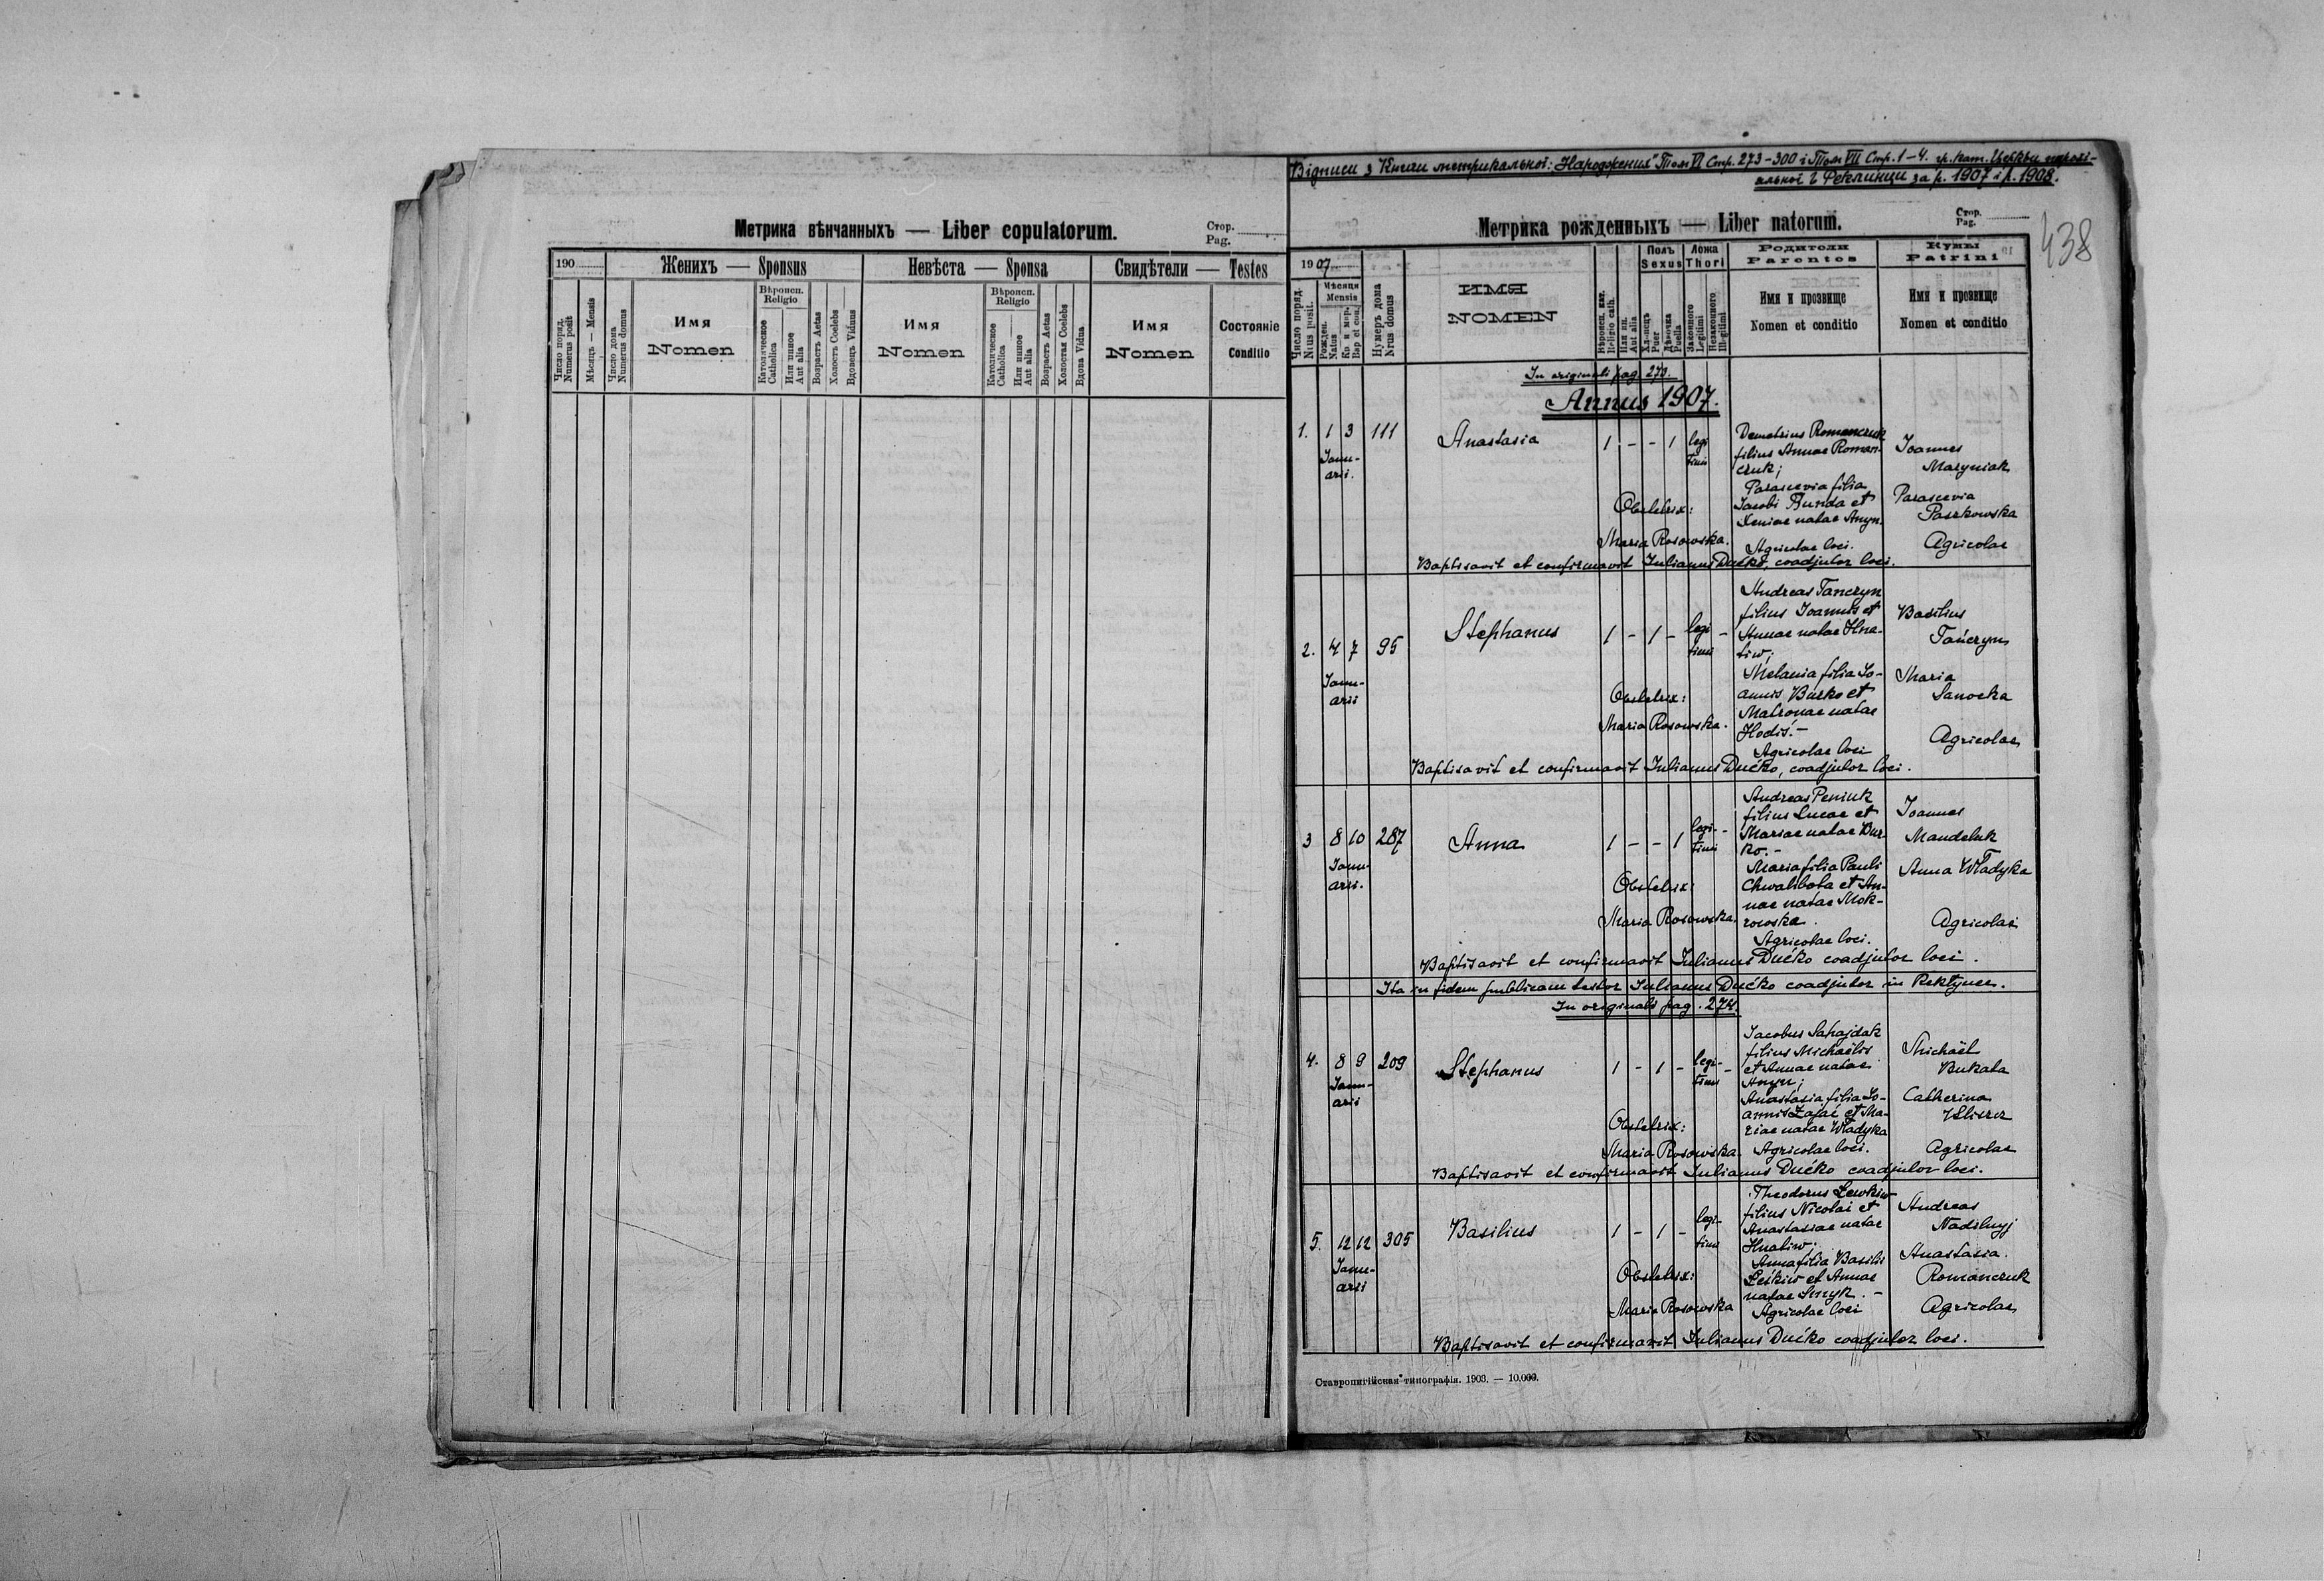 Метрика вѣнчанныхъ — Liber copulatorum.
Стор.
Pag.
190
Женихъ — Sponsus
Невѣста — Sponsa
Свидѣтели — Testes
Число поряд. Numerus posit
Мѣсяцъ — Mensis
Число дома Numerus domus
Имя
Nomen
Вѣроисп.
Religio
Католическое Catholica
Или инное Aut alia
Возрастъ Aetas
Холостъ Coelebs
Вдовецъ Viduus
Имя
Nomen
Вѣроисп.
Religio
Католическое Catholica
Или инное Aut alia
Возрастъ Aetas
Холостая Coelebs
Вдова Vidua
Имя
Nomen
Состояніе
Conditio
Відписи з Книги метрикальної: "Народження" Том VI Стр. 273-300 і Том VII Стр. 1-4. гр. кат. Церкви парохі-
яльної в Реклинци за р. 1907 і р. 1908.
438
Метрика рожденныхъ — Liber natorum.
Стор.
Pag.
1907
Число поряд. Nrus posit.
Мѣсяця
Mensis
Рожден. Natus
Кр. и мѵр. Bap et con.
Нумеръ дома Nrus domus
ИМЯ
NOMEN
Вѣроисп. кат. Religio cath.
Или ин. Aut alia
Полъ
Sexus
Хлопецъ Puer
Дѣвочка Puella
Ложа
Thori
Законного Legitimi
Незаконного Illegitimi
Родители
Parentes
Имя и прозвище
Nomen et conditio
Кумы
Patrini
Имя и прозвище
Nomen et conditio
In originali pag. 273.
Annus 1907.
1. 1 3 111 Anastasia 1 - - 1 legi
timi
Janu-
arii.
Demetrius Romanczuk
filius Annae Roman-
czuk;
Parascevia filia
Jacobi Bunda et
Xeniae natae Anyn.
Agricolae loci.
Joannes
Maryniak
Parascevia
Paszkowska
Agricolae
Obstetrix:
Maria Rosowska.
Baptisavit et confirmavit Julianus Dućko, coadjutor loci.
2. 4 7 95 Stephanus 1 - 1 - legi -
timi
Janu-
arii
Andreas Tanczyn
filius Joannis et
Annae natae Hna-
tiw;
Melania filia Jo-
annis Burko et
Matronae natae
Hodiś.-
Agricolae loci
Basilius
Tańczyn
Maria
Sanocka
Agricolae
Obstetrix:
Maria Rosowska.
Baptisavit et confirmavit Julianus Dućko, coadjutor loci.
3 8 10 287 Anna 1 - - 1 legi- -
timi
Janu-
arii.
Andreas Peniuk
filius Lucae et
Mariae natae Bur-
ko.-
Maria filia Pauli
Chwalibota et An-
nae natae Mok-
rowska.
Agricolae loci.
Joannes
Mandeluk
Anna Władyka
Agricolae
Obstetrix:
Maria Rosowska.
Baptisavit et confirmavit Julianus Dućko coadjutor loci.
Ita in fidem publicam testor Julianus Dućko coadjutor in Rektyncu.
In originali pag. 274.
4. 8 9 209 Stephanus 1 - 1 - legi- -
timi
Janu-
arii
Jacobus Sahajdak
filius Michaelis
et Annae natae
Anyn;
Anastasia filia Jo-
annis Zajać et Ma-
riae natae Władyka
Agricolae loci.
Michaël
Bukata
Catherina
Agricolae
Obstetrix:
Maria Rosowska.
Baptisavit et confirmavit Julianus Dućko coadjutor loci.
5. 12 12 305 Basilius 1 - 1 - legi-
timi
Janu-
arii
Theodorus Lewkiw
filius Nicolai et
Anastasiae natae
Hnatiw;
Anna filia Basilii
Leśkiw et Annae
natae Smyk.-
Agricolae loci
Andreas
Nadilnyj
Anastasia.
Romanczuk
Agricolae
Obstetrix:
Maria Rosowska
Baptisavit et confirmavit Julianus Dućko coadjutor loci.
Ставропигійская типографія. 1903. — 10.000.